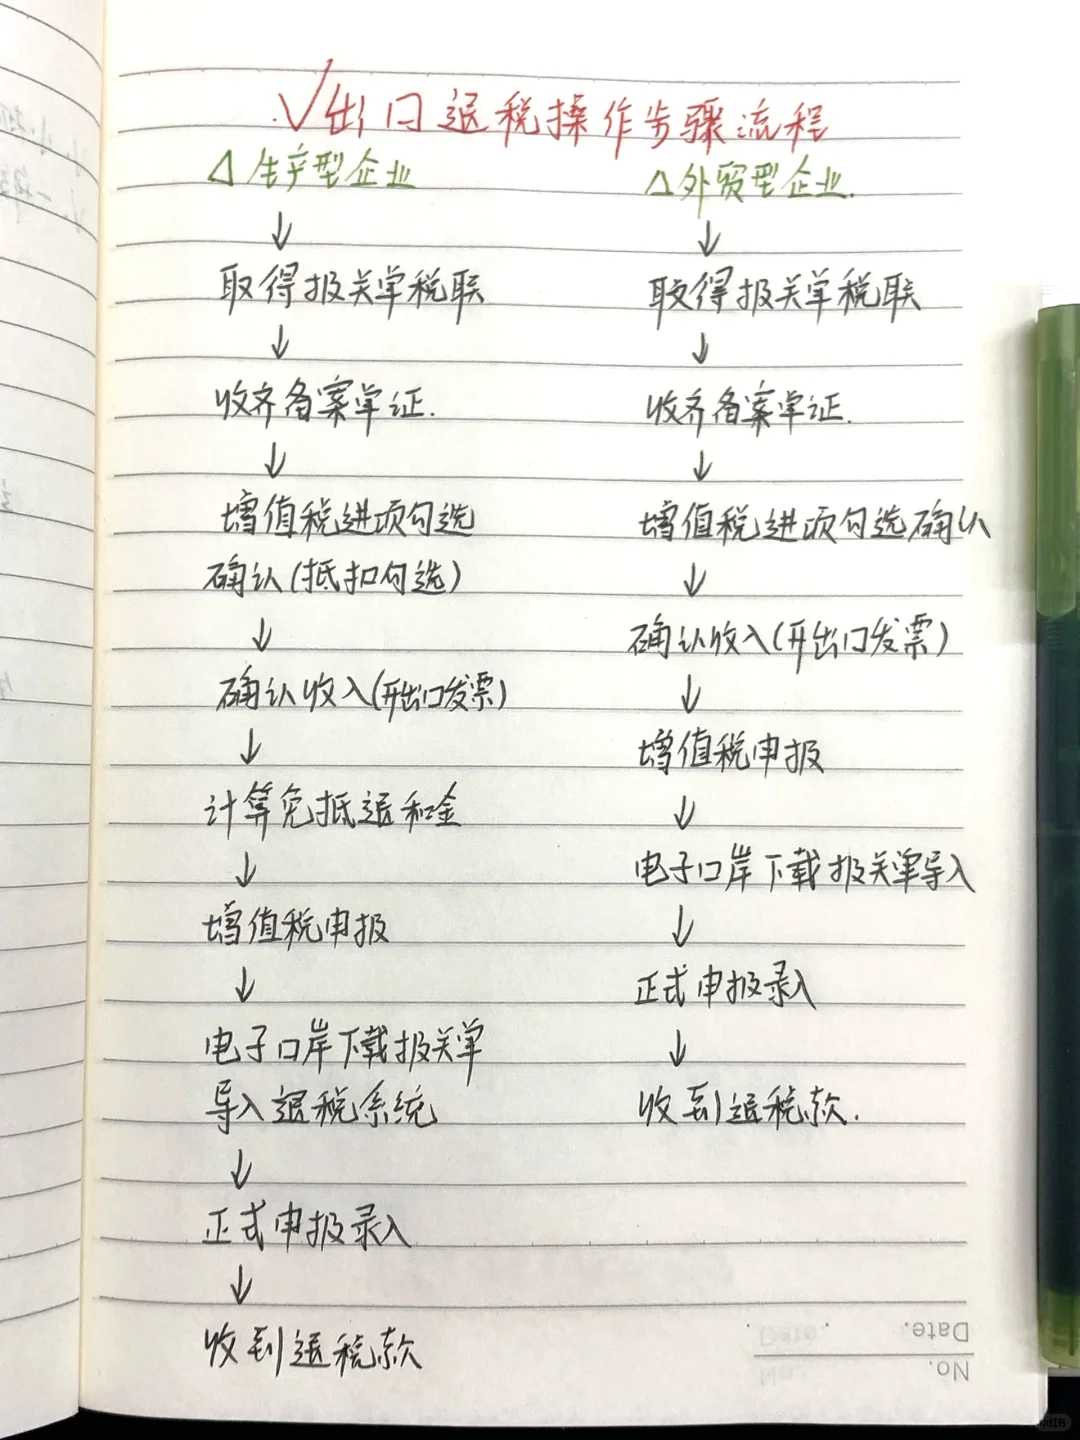 √出口退税操作步骤流程
△生产型企业
↓
取得报关单税联
↓
收齐备案单证.
↓
增值税进项勾选
确认(抵扣勾选)
↓
确认收入(开出口发票)
↓
计算免抵退和金
↓
增值税申报
↓
电子口岸下载报关单
导入退税系统
↓
正式申报录入
↓
收到退税款
△外贸型企业.
↓
取得报关单税联
↓
收齐备案单证.
↓
增值税进项勾选确认
↓
确认收入(开出口发票)
↓
增值税申报
↓
电子口岸下载报关单导入
↓
正式申报录入
↓
收到退税款.
Date.
No.